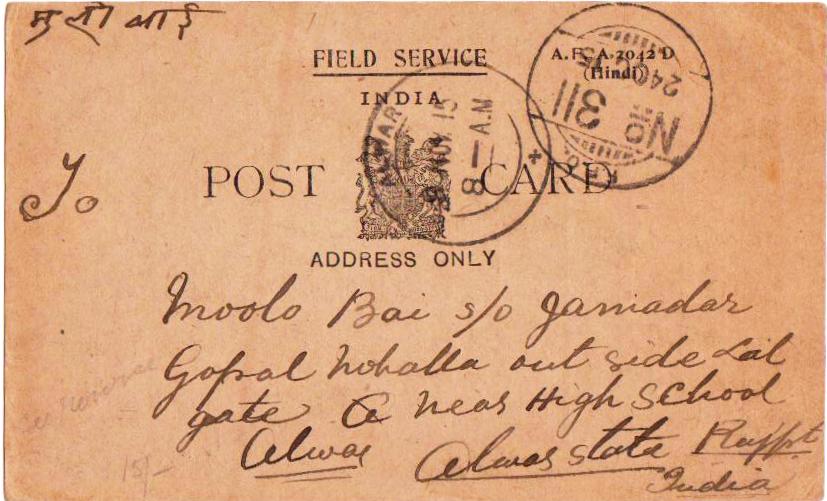 मुली बाई
FIELD SERVICE
A.F. A.2042 D
(Hindi)
INDIA
24 OC 15
No 311
F.P.O.
ALWAR
NOV. 15
8 A.M
To
POST CARD
ADDRESS ONLY
Moolo Bai s/o Jamadar
Gopal Mohalla out side Lal
gate & near High School
Alwar Alwar State Rajpt
India
15/-